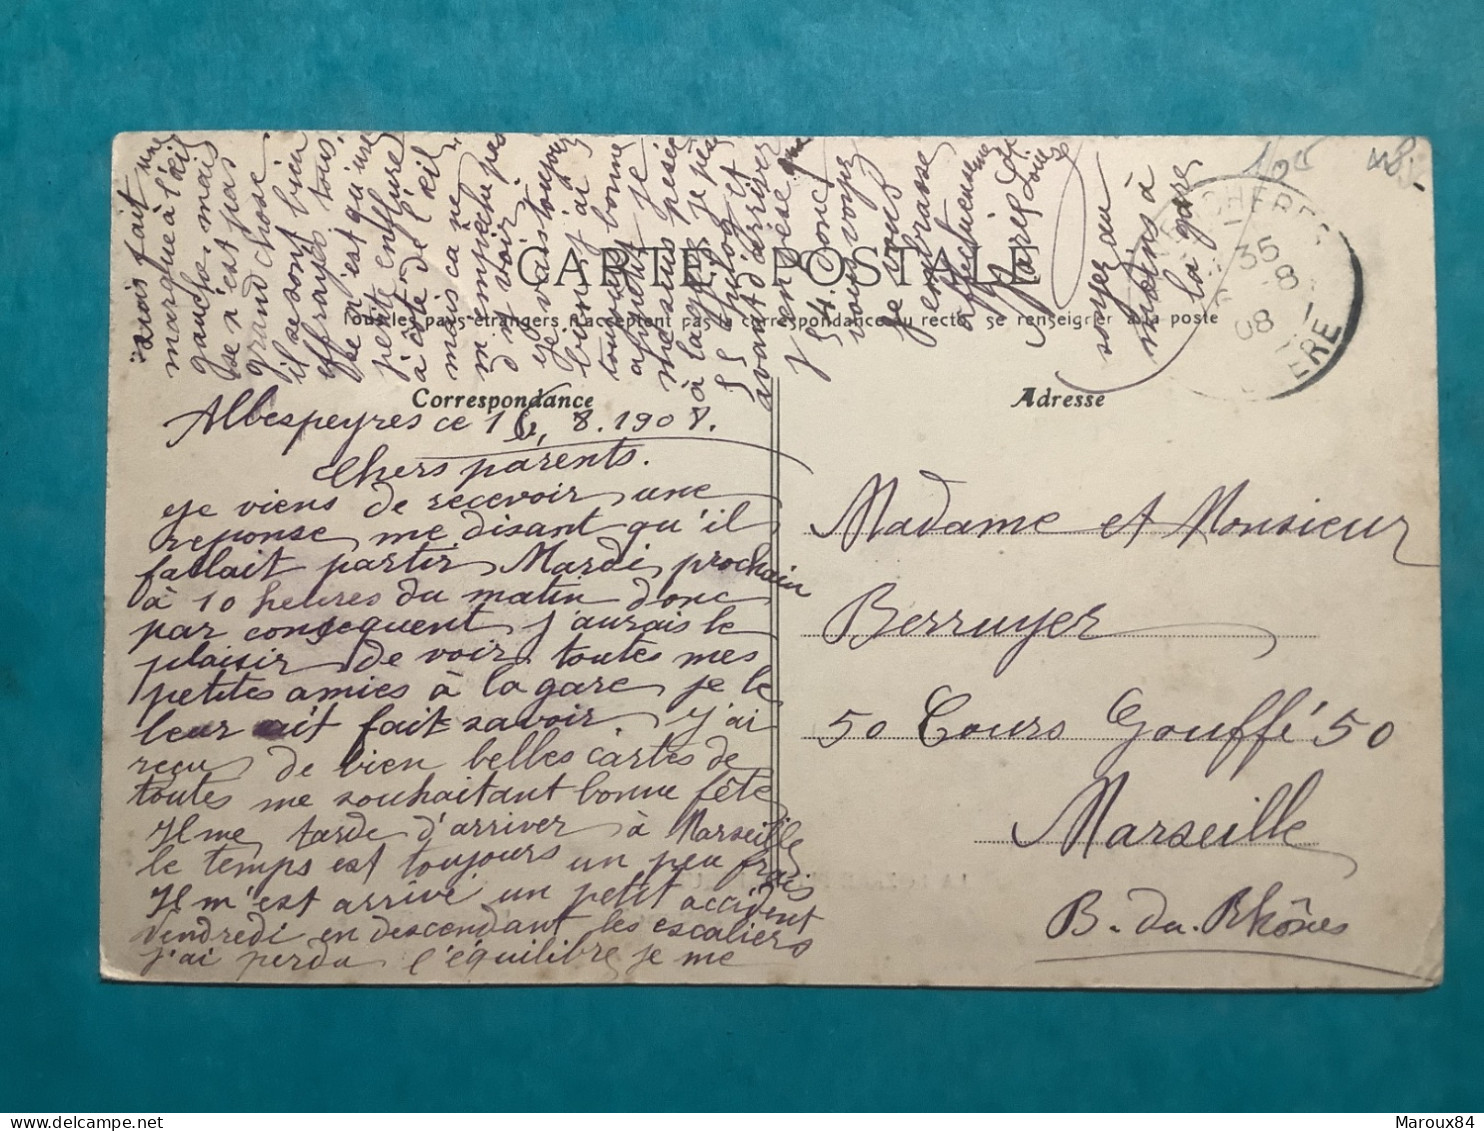 CARTE POSTALE
Tous les pays étrangers n'acceptent pas la correspondance au recto, se renseigner à la poste
Correspondance
Adresse
Albespeyres ce 16. 8. 1908.
Chers parents.
Je viens de recevoir une
reponse me disant qu'il
fallait partir Mardi prochain
à 10 heures du matin donc
par consequent j'aurais le
plaisir de voir toutes mes
petites amies à la gare je le
leur ait fait savoir J'ai
reçu de bien belles cartes de
toutes me souhaitant bonne fête
Il me tarde d'arriver à Marseille
le temps est toujours un peu frais
Il m'est arrivé un petit accident
Vendredi en descendant les escaliers
j'ai perdu l'équilibre je me
serais fait une
marque à l'œil
gauche mais
se n'est pas
grand chose
il se sont bien
effrayés tous.
se n'est qu'une
petite enflure
à côté de l'œil
mais ca ne
m'empêche pas
d'y voir
je vais toujours
bien j'ai
toujours bonne
appetit je
me suis pésée
à la gare je pèse
55 kilog et
avant d'arriver
je en pèse que
54 donc
vous voyez
je vous
embrasse
affectueusement
Marie Louise
soyez au
moins à
la gare
Madame et Monsieur
Berruyer
50 Cours Gouffé 50
Marseille
B. du. Rhônes
35
-8
08
ÈRE
105
Maroux84